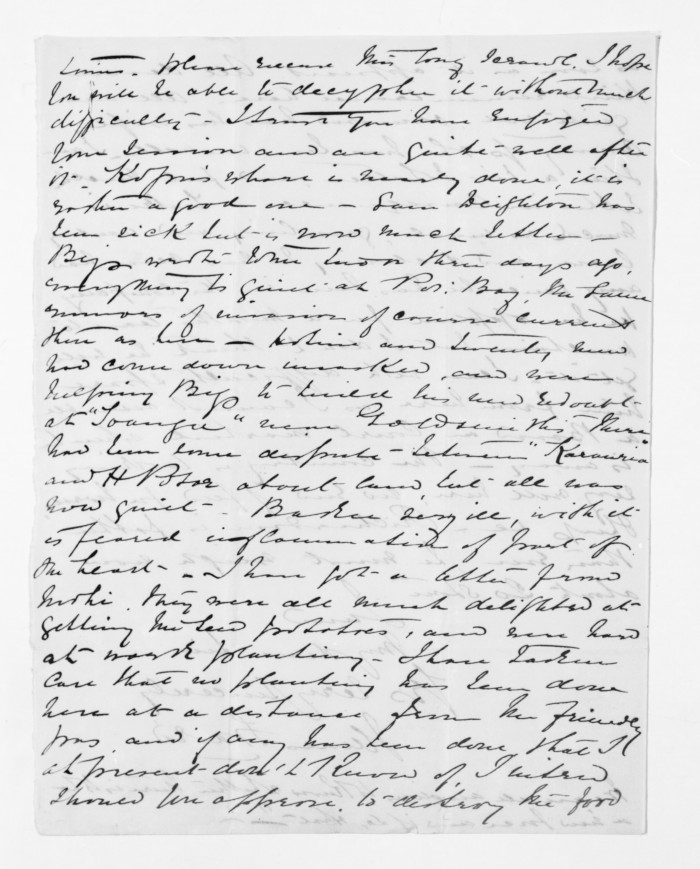 times. please excuse this long scrawl. I hope
you will be able to decypher it without much
difficulty – I trust you have enjoyed
your session and are quite well after
it – Kopu's whare is nearly done, it is
rather a good one – Sam Deighton has
been sick but is now much better –
Bigs wrote two or three days ago,
everything is quiet at Pov: Bay, the same
rumors of invasion of course current
there as here – and twenty men
had come down unasked, and were
helping Bigs to build his new redoubt
at "Toanga" near Goldsmiths, There
had been some dispute between "Karauria"
and H about land, but all was
now quiet – Barker very ill, with it
is feared inflammation of part of
the heart – I have got a letter from
, they were all much delighted at
getting the seed potatoes, and were hard
at work planting – I have taken
care that no planting has been done
here at a distance from the friendly
pas, and if any has been done, that I
at present don't know of, I intend
should you approve, to destroy the food